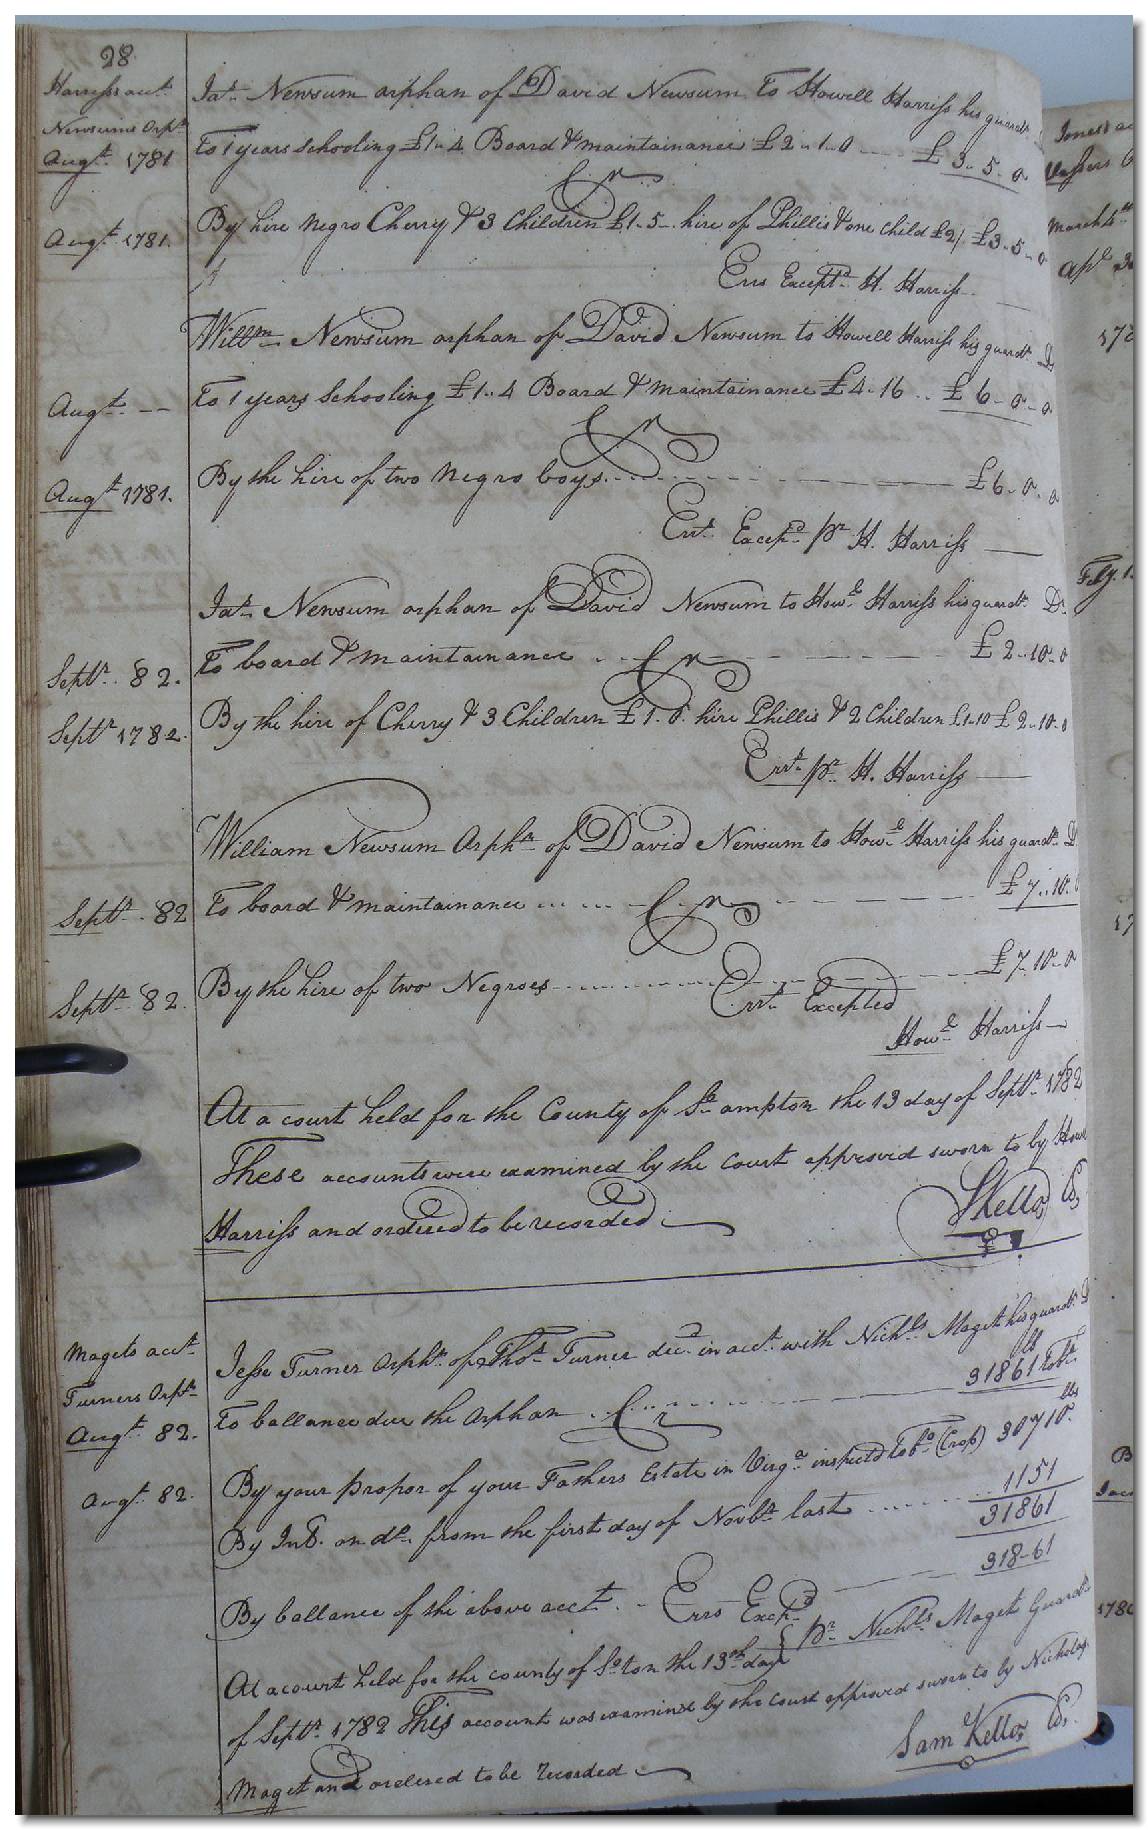 28
Harriss acct.
Newsums Orps.
Augt. 1781
Jas. Newsum orphan of David Newsum To Howell Harriss his guardn.
To 1 years Schooling £1..4 Board & maintainance £2..1..0 £3..5..0
Cr
Augt. 1781. By hire Negro Cherry & 3 Children £1..5 hire of Phillis & one Child £2/ £3..5..0
Errs Exceptd. H. Harriss
Willm. Newsum orphan of David Newsum to Howell Harriss his guardn. Dr
Augt. -- To 1 years Schooling £1..4 Board & maintainance £4..16 .. £6..0..0
Cr
Augt. 1781. By the hire of two Negro boys £6..0..0
Errs. Exceptd. pr H. Harriss
Jas. Newsum orphan of David Newsum to Howl. Harriss his guardn. Dr
Septr. 82. To board & maintainance £2..10..0
Cr
Septr 1782. By the hire of Cherry & 3 Children £1..0. hire Phillis & 2 Children £1..10 £2..10..0
Errs. pr. H. Harriss
William Newsum Orphn. of David Newsum to Howl. Harriss his guardn. D
Septr. 82 To board & maintainance £7..10..0
Cr
Septr. 82. By the hire of two Negroes £7..10..0
Errs. Excepted
Howl. Harriss
At a court held for the County of So. ampton the 13 day of Septr. 1782
These accounts were examined by the Court approved sworn to by Howl
Harriss and ordered to be recorded
S Kello, C,
Magets acct.
Turners Orps.
Augt. 82.
Jesse Turner Orphn. of Thos. Turner decd. in acct. with Nichls. Maget his guardn. D
lbs
To ballance due the Orphan 31861 Tobo.
Cr
lbs
Augt. 82. By your propor of your Fathers Estate in Virga. inspectd Tobo. (Crop) 30710.
By Int. on do. from the first day of Novbr. last 1151
31861
By ballance of the above acct. 318-61
Errs Excepd.
pr. Nichls. Maget Guardn
At a court held for the county of So. ton the 13th. day
of Septr. 1782 This account was examind by the Court approved sworn to by Nicholas
Maget and ordered to be recorded
Sam Kello, C,
Jones's
March
Apl
Feby. 1